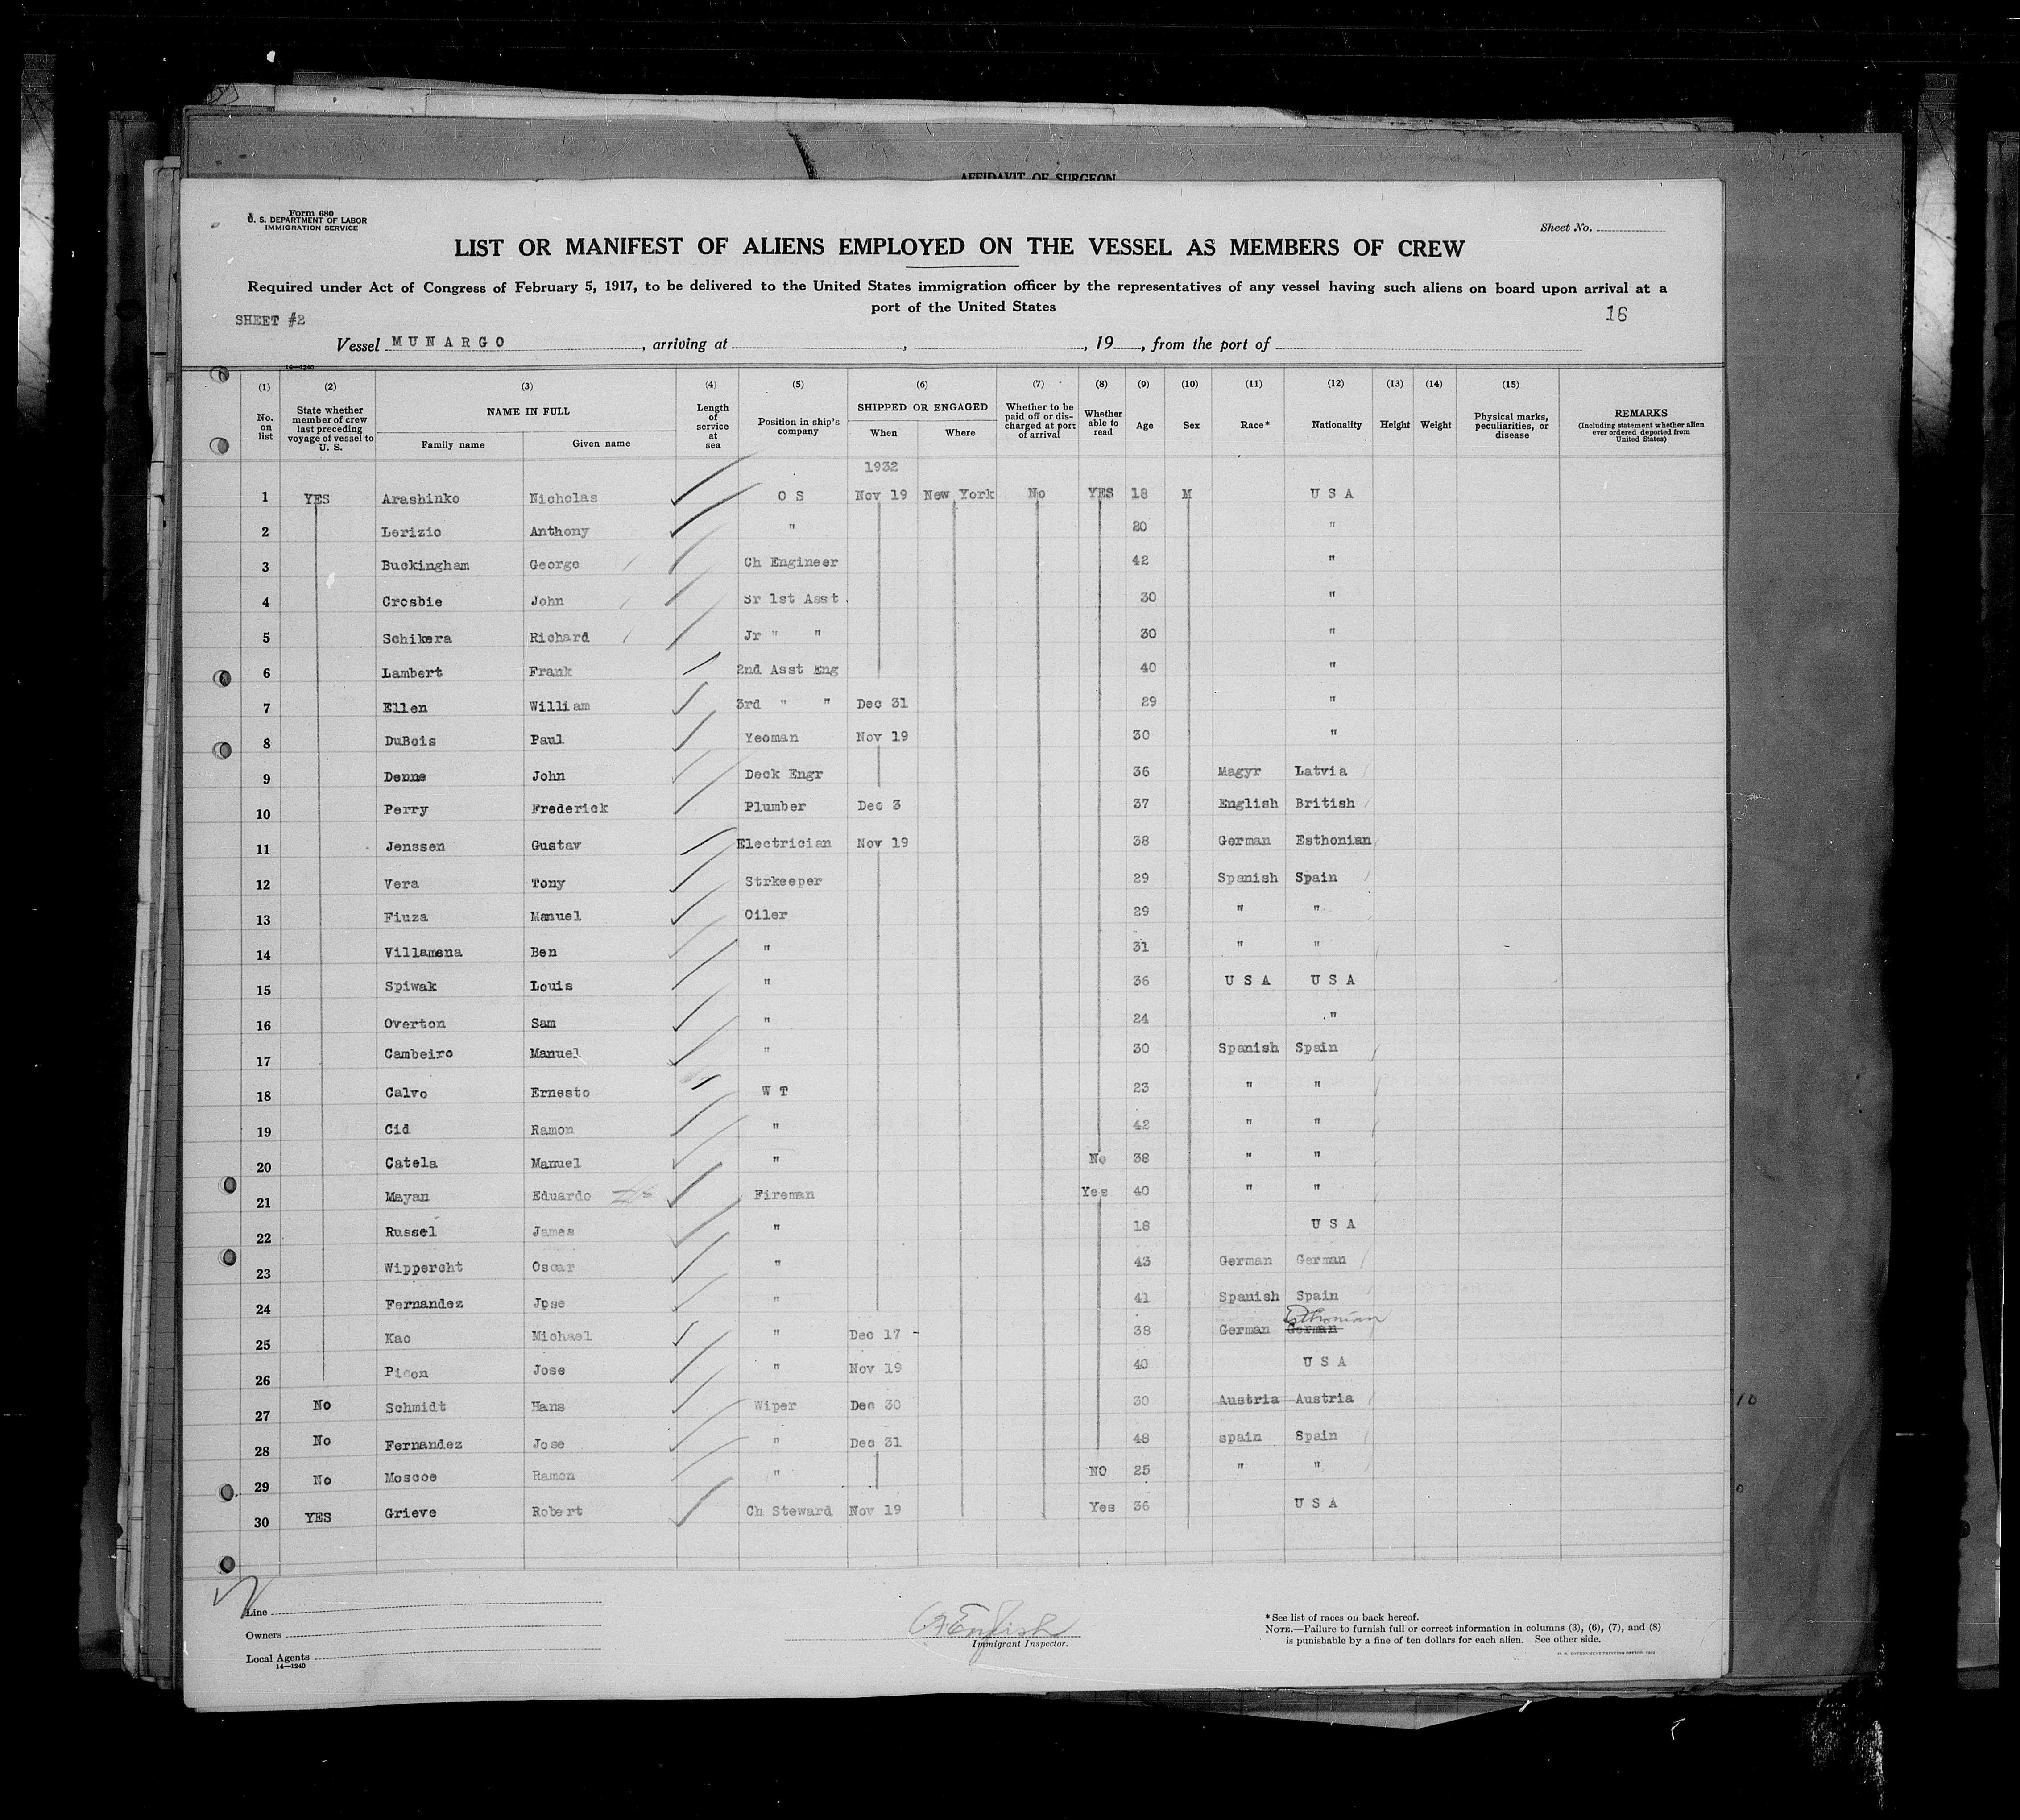 AFFIDAVIT OF SURGEON
Form 680
U. S. DEPARTMENT OF LABOR
IMMIGRATION SERVICE
Sheet No.
LIST OR MANIFEST OF ALIENS EMPLOYED ON THE VESSEL AS MEMBERS OF CREW
Required under Act of Congress of February 5, 1917, to be delivered to the United States immigration officer by the representatives of any vessel having such aliens on board upon arrival at a
port of the United States
SHEET #2
16
Vessel MUNARGO, arriving at , , 19 , from the port of
14—1240
(1) (2) (3) (4) (5) (6) (7) (8) (9) (10) (11) (12) (13) (14) (15)
No. on list State whether member of crew last preceding voyage of vessel to U. S. NAME IN FULL Family name Given name Length of service at sea Position in ship's company SHIPPED OR ENGAGED When Where Whether to be paid off or discharged at port of arrival Whether able to read Age Sex Race* Nationality Height Weight Physical marks, peculiarities, or disease REMARKS (Including statement whether alien ever ordered deported from United States)
1932
1 YES Arashinko Nicholas O S Nov 19 New York No YES 18 M U S A
2 Lerizio Anthony " 20 "
3 Buckingham George Ch Engineer 42 "
4 Crosbie John Sr 1st Asst. 30 "
5 Schikera Richard Jr " " 30 "
6 Lambert Frank 2nd Asst Eng 40 "
7 Ellen William 3rd " " Dec 31 29 "
8 DuBois Paul Yeoman Nov 19 30 "
9 Denne John Deck Engr 36 Magyr Latvia
10 Perry Frederick Plumber Dec 3 37 English British
11 Jenssen Gustav Electrician Nov 19 38 German Esthonian
12 Vera Tony Strkeeper 29 Spanish Spain
13 Fiuza Manuel Oiler 29 " "
14 Villamena Ben " 31 " "
15 Spiwak Louis " 36 U S A U S A
16 Overton Sam " 24 "
17 Cambeiro Manuel " 30 Spanish Spain
18 Calvo Ernesto W T 23 " "
19 Cid Ramon " 42 " "
20 Catela Manuel " No 38 " "
21 Mayan Eduardo Fireman Yes 40 " "
22 Russel James " 18 U S A
23 Wippercht Oscar " 43 German German
24 Fernandez Jose " 41 Spanish Spain
Esthonian
25 Kao Michael " Dec 17 - 38 German German
26 Picon Jose " Nov 19 40 U S A
27 No Schmidt Hans Wiper Dec 30 30 Austria Austria
28 No Fernandez Jose " Dec 31 48 spain Spain
29 No Moscoe Ramon " NO 25 " "
30 YES Grieve Robert Ch Steward Nov 19 Yes 36 U S A
Line
Owners
Local Agents
14—1240
English
Immigrant Inspector.
*See list of races on back hereof.
NOTE.—Failure to furnish full or correct information in columns (3), (6), (7), and (8)
is punishable by a fine of ten dollars for each alien. See other side.